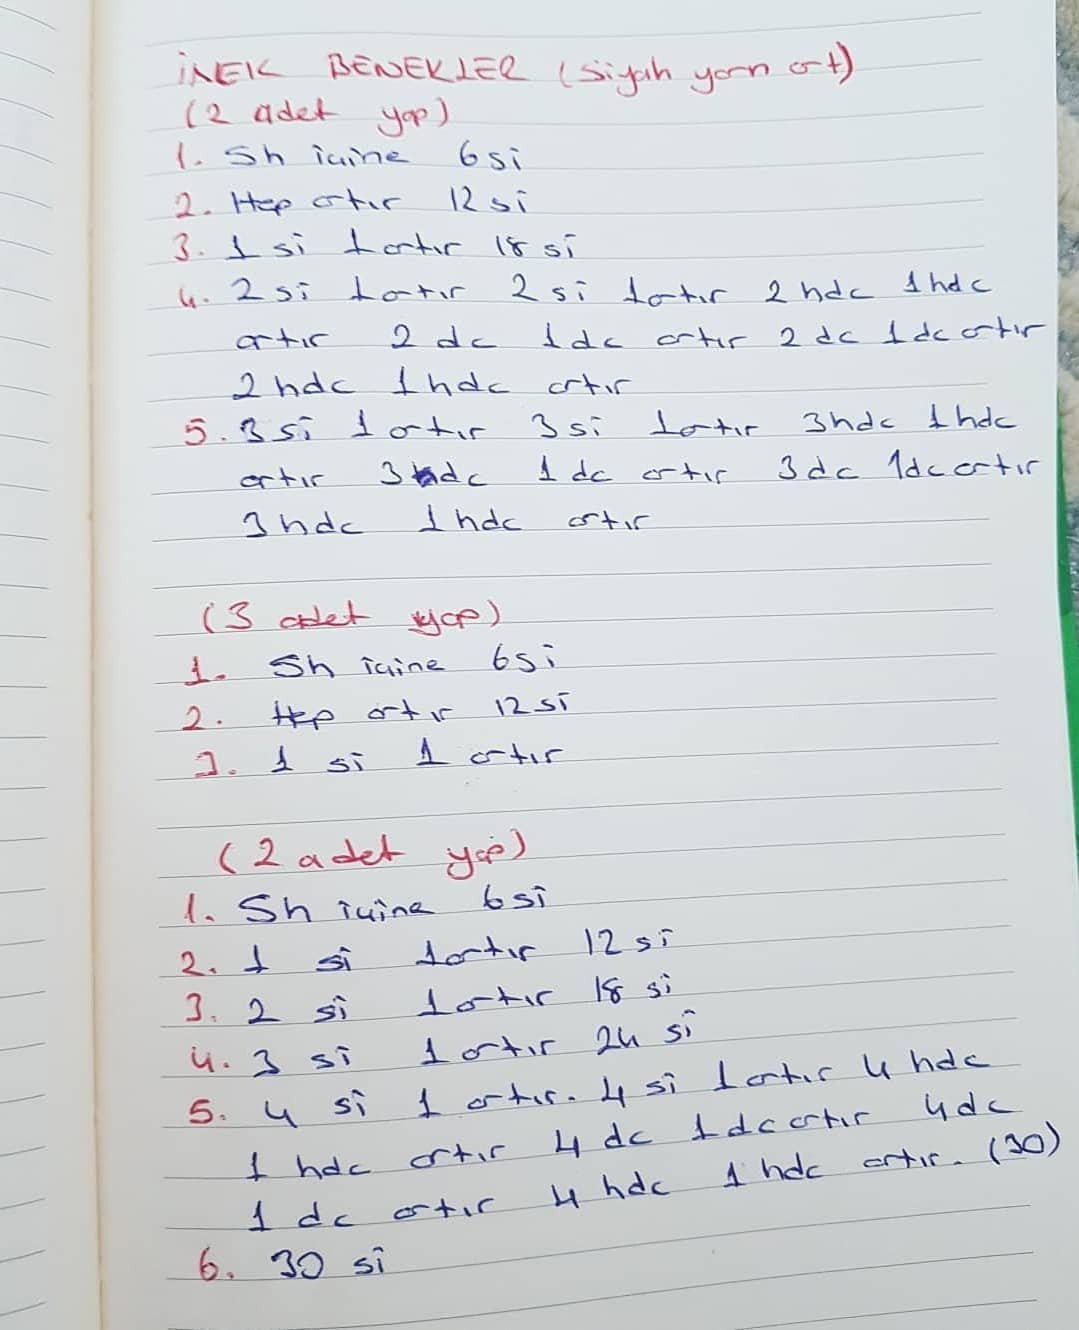 İNEK BENEKLER (Siyah yarn ört)
(2 adet yap)
1. Sh içine 6 si
2. Hep artır 12 si
3. 1 si 1 artır 18 si
4. 2 si 1 artır 2 si 1 artır 2 hdc 1 hdc
artır 2 dc 1 dc artır 2 dc 1 dc artır
2 hdc 1 hdc artır
5. 3 si 1 artır 3 si 1 artır 3 hdc 1 hdc
artır 3 dc 1 dc artır 3 dc 1 dc artır
3 hdc 1 hdc artır
(3 adet yap)
1. Sh içine 6 si
2. Hep artır 12 si
3. 1 si 1 artır
(2 adet yap)
1. Sh içine 6 si
2. 1 si 1 artır 12 si
3. 2 si 1 artır 18 si
4. 3 si 1 artır 24 si
5. 4 si 1 artır. 4 si 1 artır 4 hdc
1 hdc artır 4 dc 1 dc artır 4 dc
1 dc artır 4 hdc 1 hdc artır. (30)
6. 30 si